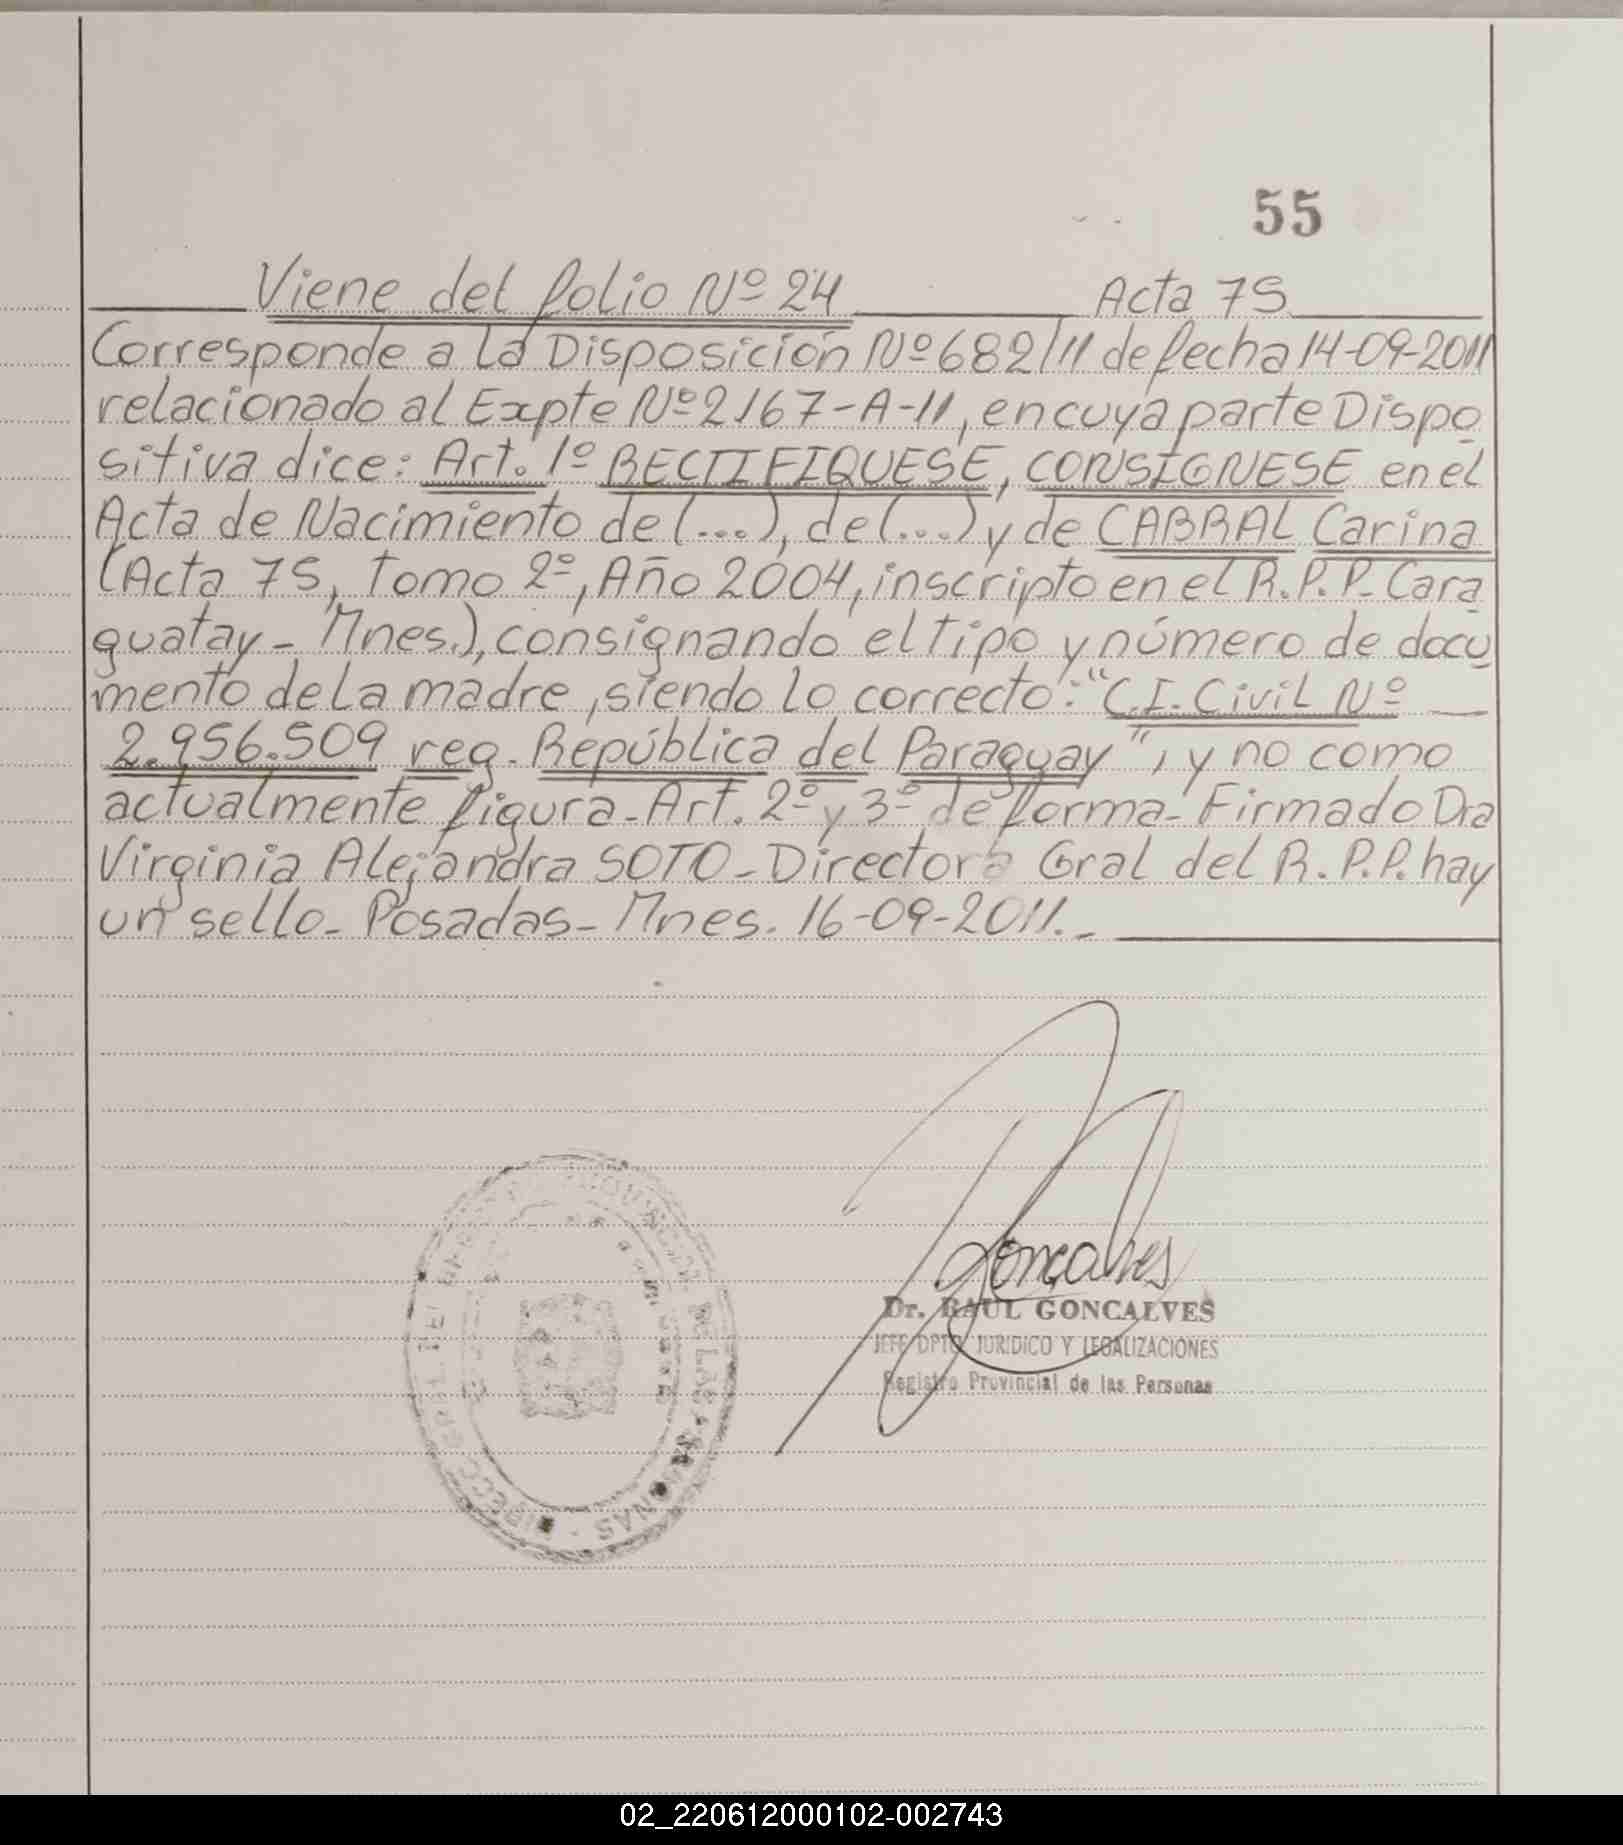 55
Viene del folio Nº 24 Acta 75
Corresponde a la Disposición Nº 682/11 de fecha 14-09-2011
relacionado al Expte Nº 2167-A-11, en cuya parte Dispo
sitiva dice: Art. 1º RECTIFIQUESE, CONSIGNESE en el
Acta de Nacimiento de (...), de (...) y de CABRAL Carina
(Acta 75, Tomo 2º, Año 2004, inscripto en el R.P.P. Cara
guatay - Mnes.), consignando el tipo y número de docu
mento de la madre, siendo lo correcto: "C.I. Civil Nº
2.956.509 reg. República del Paraguay", y no como
actualmente figura. Art. 2º y 3º de forma - Firmado Dra
Virginia Alejandra SOTO - Directora Gral del R.P.P. hay
un sello - Posadas - Mnes. 16-09-2011. -
Goncalves
Dr. RAUL GONCALVES
JEFE DPTO. JURIDICO Y LEGALIZACIONES
Registro Provincial de las Personas
DE LAS PERSONAS
02_220612000102-002743